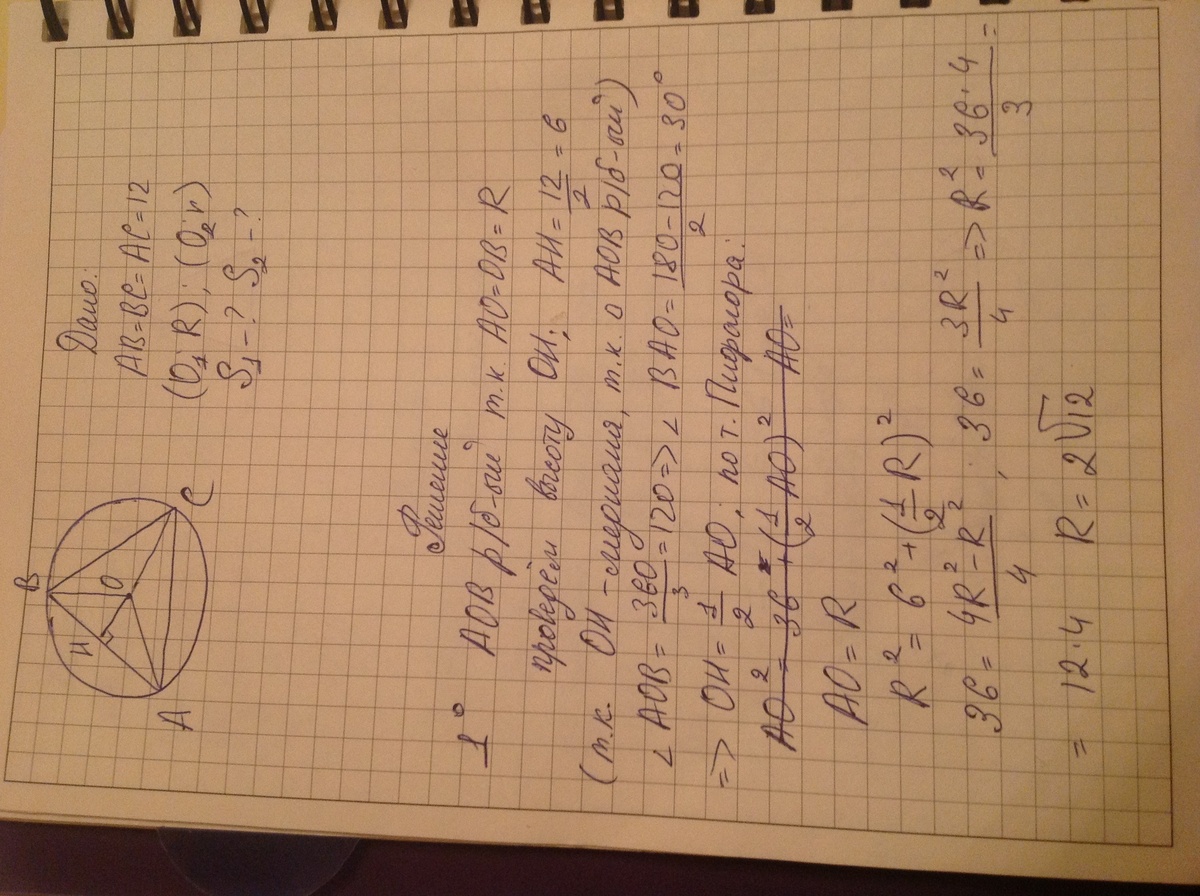 B
H
O
A
C
Дано:
AB=BC=AC=12
(O₁; R); (O₂; r)
S₁-? S₂-?
Решение
1° AOB р/б-ый т.к. AO=OB=R
проведём высоту OH; AH=12/2=6
(т.к. OH-медиана, т.к. △ AOB р/б-ый)
∠AOB=360/3=120=>∠BAO=180-120/2=30°
=> OH=1/2 AO; по т. Пифагора:
AO²=36+(1/2 AO)² AO=
AO=R
R²=6²+(1/2 R)²
36=4R²-R²/4; 36=3R²/4 => R²=36·4/3=
=12·4 R=2√12